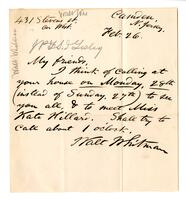 431 Stevens st.
cor West.
Camden,
N. Jersey,
Feb. 26.
My friends,
I think of calling at
your house on Monday, 28th
(instead of Sunday, 27th) to see
you all, & to meet Miss
Kate Hillard. Shall try to
call about 1 o'clock.
Walt Whitman
Walt Whitman